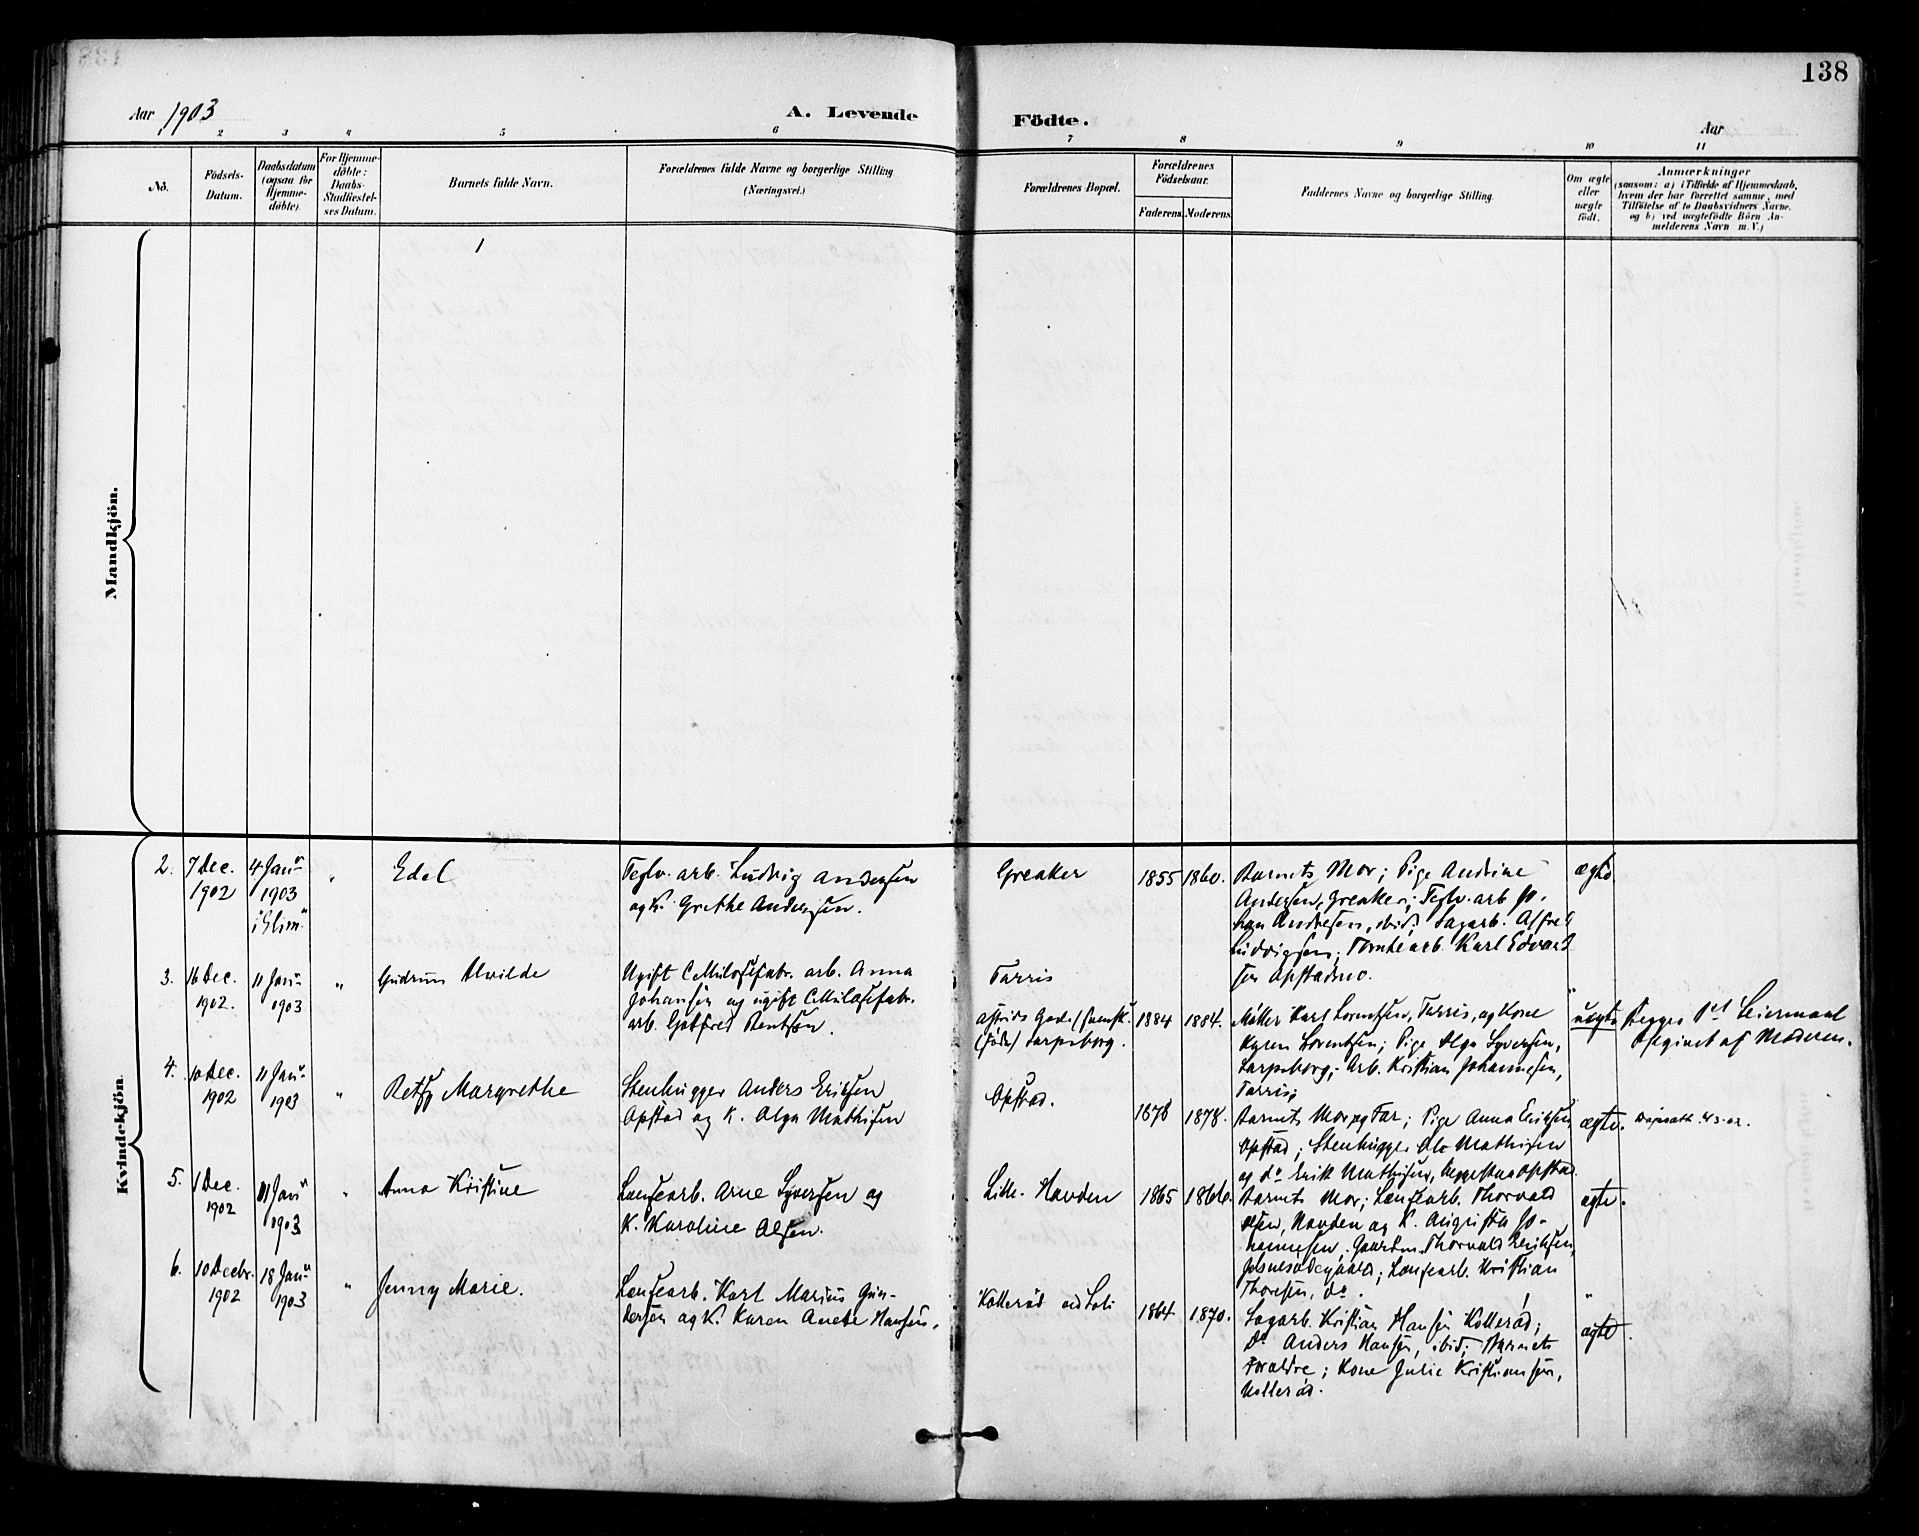 138
Aar 1903
A. Levende Födte.
Aar
1 2 3 4 5 6 7 8 9 10 11
No.
Födsels-
Datum.
Daabsdatum
(ogsaa for
Hjemme-
döbte).
For Hjemme-
döbte:
Daabs-
Stadfæstel-
ses Datum.
Barnets fulde Navn.
Forældrenes fulde Navne og borgerlige Stilling
(Næringsvei.)
Forældrenes Bopæl.
Forældrenes
Födselsaar.
Faderens Moderens
Faddernes Navne og borgerlige Stilling.
Om ægte
eller
uægte
födt.
Anmærkninger
(saasom: a) i Tilfælde af Hjemmedaab,
hvem der har forrettet samme, med
Tilföielse af to Daabsvidners Navne.
og b) ved uægtefödte Börn An-
melderens Navn m. V.)
Mandkjön.
Kvindekjön.
2.
7 Dec.
1902
4 Janr
1903
i Glim.
Edel
Teglv. arb. Ludvig Andersen
og K. Grethe Andersen.
Greaker
1855 1860.
Barnets Mor; Pige Andrine
Andersen, Greaker; Teglv. arb Jo-
han Andresen, ibid; Sagarb. Alfred
Ludvigsen; Tomtearb. Karl Edvard
sen Opstadmo.
ægte
3.
16 Dec.
1902.
11 Janr
1903
"
Gudrun Alvilde
Ugift Cellulosefabr. arb. Anna
Johansen og ugift Cellulosefabr.
arb. Gotfred Bentsen.
Tarris
1884 1884.
Møller Karl Lorentsen, Tarris, og Kone
Karen Lorentsen; Pige Olga Syversen,
Sarpsborg; Arb. Kristian Johannesen,
Tarris;
uægte
Begges 1st Leiermaal
Opgivet af Moderen.
4.
10 Dec.
1902
11 Janr
1903
"
Betsy Margrethe
Stenhugger Anders Eriksen
Opstad og K. Olga Mathisen
Opstad.
1878 1878.
Barnets Mor og Far; Pige Anna Eriksen
Opstad; Stenhugger Ole Mathisen
og do Erik Mathisen, begge fra Opstad
ægte.
5.
1 Dec.
1902
11 Janr
1903
"
Anna Kristine
Landsearb. Arne Syversen og
K. Karoline Olsen.
Lille. Navden
1865 1866.
Barnets Mor; Thorvald
Olsen, Navden og K. Augusta Jo-
hannesen, Gaardm. Thorvald Eriksen,
Kristian
Thoresen, do.
ægte.
6.
10 Decbr.
1902
18 Janr
1903
"
Jenny Marie.
Karl Marius Gun-
dersen og K. Karen Anette Hansen.
Kollerød ved Soli
1864 1870.
Sagarb. Kristian Hansen Kollerød;
Do Anders Hansen, ibid; Barnets
Foraldre; Kone Julie Kristiansen,
Kollerød.
ægte.